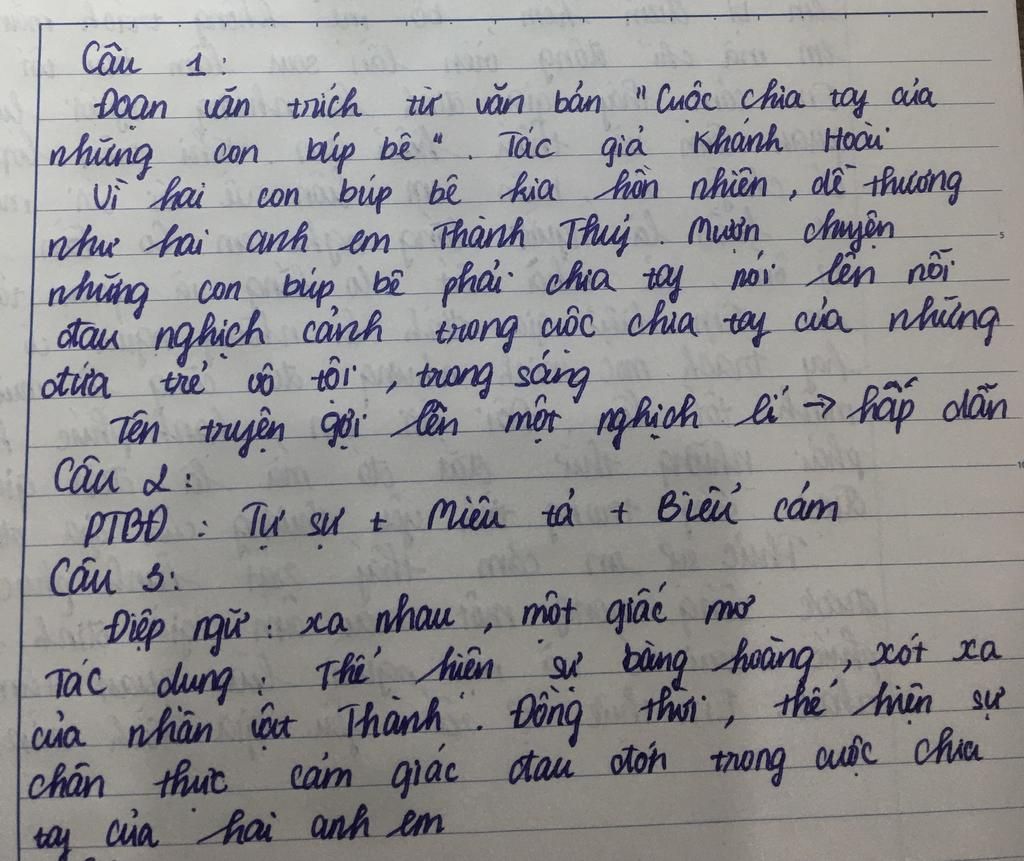 Câu 1:
Đoạn văn trích từ văn bản "Cuộc chia tay của
những con búp bê". Tác giả Khánh Hoài
Vì hai con búp bê kia hồn nhiên, dễ thương
như hai anh em Thành Thuỷ. Mượn chuyện
những con búp bê phải chia tay nói lên nỗi
đau nghịch cảnh trong cuộc chia tay của những
đứa trẻ vô tội, trong sáng
Tên truyện gợi lên một nghịch lí → hấp dẫn
Câu 2:
PTBĐ: Tự sự + Miêu tả + Biểu cảm
Câu 3:
Điệp ngữ: xa nhau, một giấc mơ
Tác dung: Thể hiện sự bàng hoàng, xót xa
của nhân vật Thành. Đồng thời, thể hiện sự
chân thực cảm giác đau đớn trong cuộc chia
tay của hai anh em